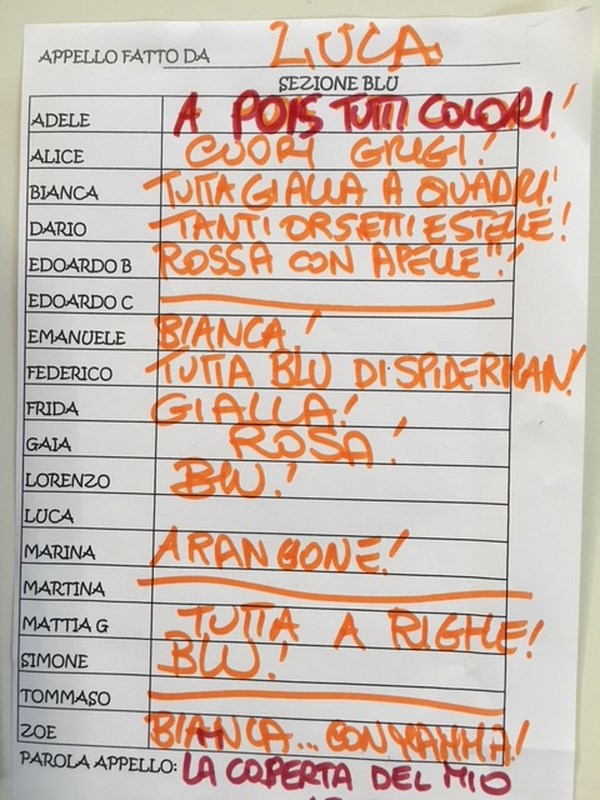 APPELLO FATTO DA LUCA
SEZIONE BLU
ADELE A POIS TUTTI COLORI!
ALICE CUORI GRIGI!
BIANCA TUTTA GIALLA A QUADRI!
DARIO TANTI ORSETTI E STELLE!
EDOARDO B ROSSA CON APELLE"!
EDOARDO C
EMANUELE BIANCA!
FEDERICO TUTTA BLU DI SPIDERMAN!
FRIDA GIALLA!
GAIA ROSA!
LORENZO BLU!
LUCA
MARINA ARANCIONE!
MARTINA
MATTIA G TUTTA A RIGHE!
SIMONE BLU!
TOMMASO
ZOE BIANCA... CON MAMMA!
PAROLA APPELLO: LA COPERTA DEL MIO